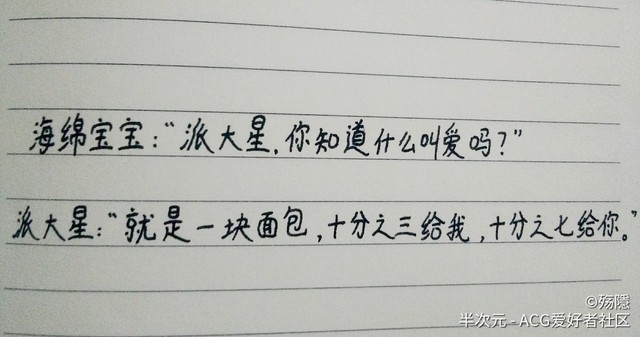 海绵宝宝:“派大星,你知道什么叫爱吗?”
派大星:“就是一块面包,十分之三给我,十分之七给你。”
©殇隱
半次元 - ACG爱好者社区